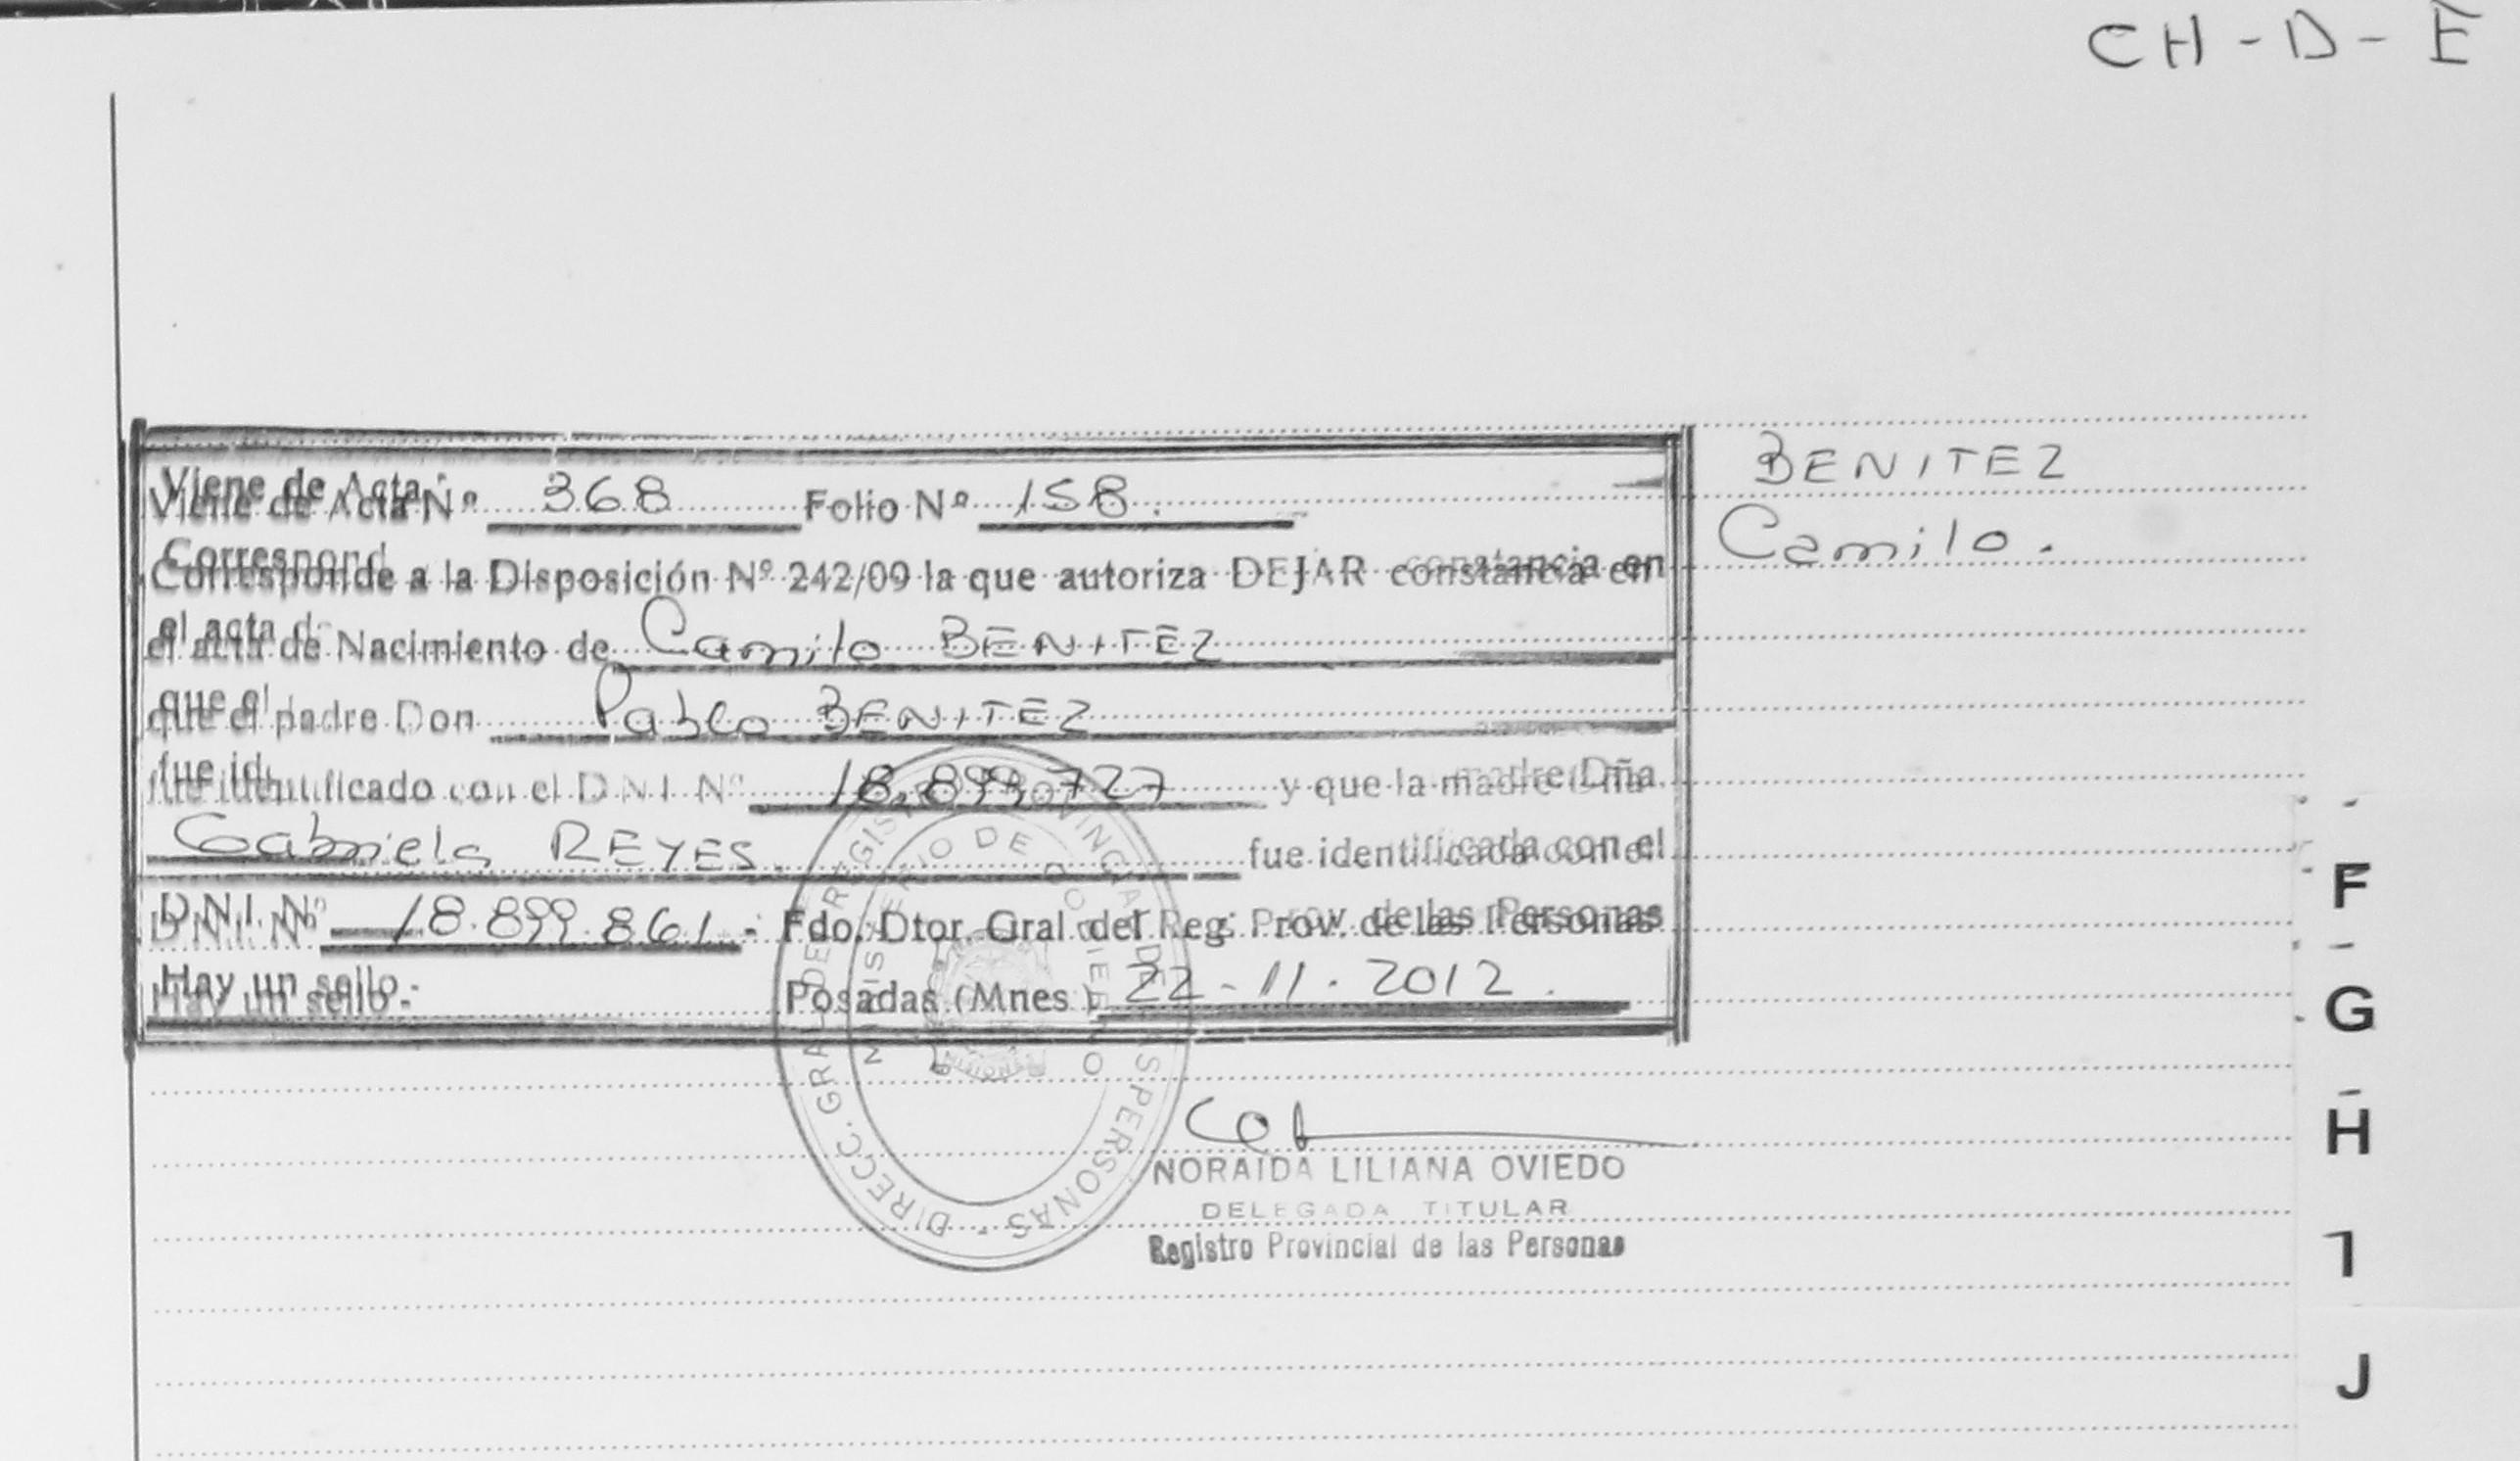 CH - D - E
Viene de Acta Nº 368 Folio Nº 158.
Corresponde a la Disposición Nº 242/09 la que autoriza DEJAR constancia en
el acta de Nacimiento de Camilo BENITEZ
que el padre Don Pablo BENITEZ
fue identificado con el D.N.I. Nº 18.899.727 y que la madre Dña
Gabriela REYES. fue identificada con el
D.N.I. Nº 18.899.861.- Fdo. Dtor. Gral del Reg. Prov. de las Personas
Hay un sello.- Posadas (Mnes.) 22-11.2012.
BENITEZ
Camilo.
DIRECC. GRAL. DE REGISTRO PROVINCIAL DE LAS PERSONAS -
MINISTERIO DE GOBIERNO
NORAIDA LILIANA OVIEDO
DELEGADA TITULAR
Registro Provincial de las Personas
F
G
H
I
J